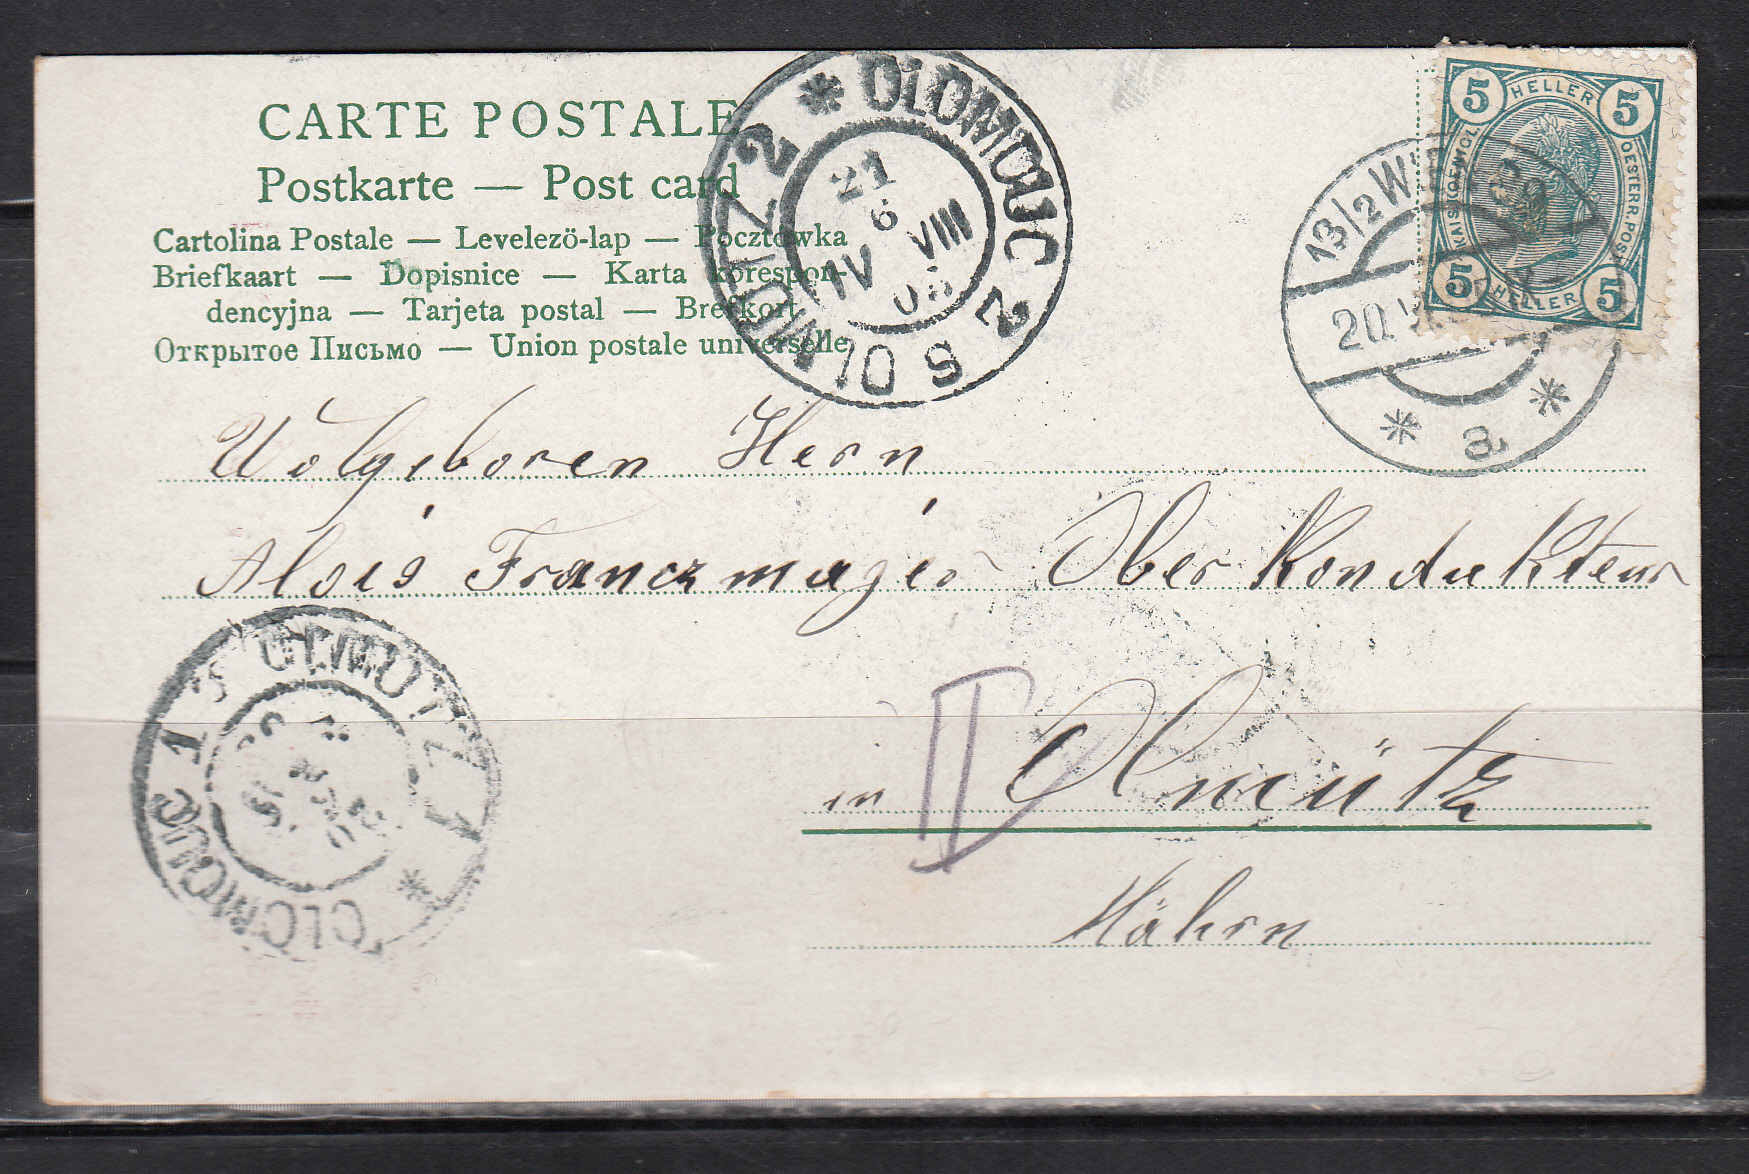 CARTE POSTALE
Postkarte — Post card
Cartolina Postale — Levelezö-lap — Pocztowka
Briefkaart — Dopisnice — Karta korespon-
dencyjna — Tarjeta postal — Brefkort
Открытое Письмо — Union postale universelle
* OLOMOUC 2 S OLMÜTZ 2
21
6
IV VIII
13/2 WIEN
20. VI
* a *
5 HELLER 5
KAIS. KOENIGL. OESTERR. POST
5 HELLER 5
Wolgeboren Hern
Alois Franczmagier Ober Kondukteur
II
in Olmütz
Mährn
OLMÜTZ 1 * OLOMOUC 1